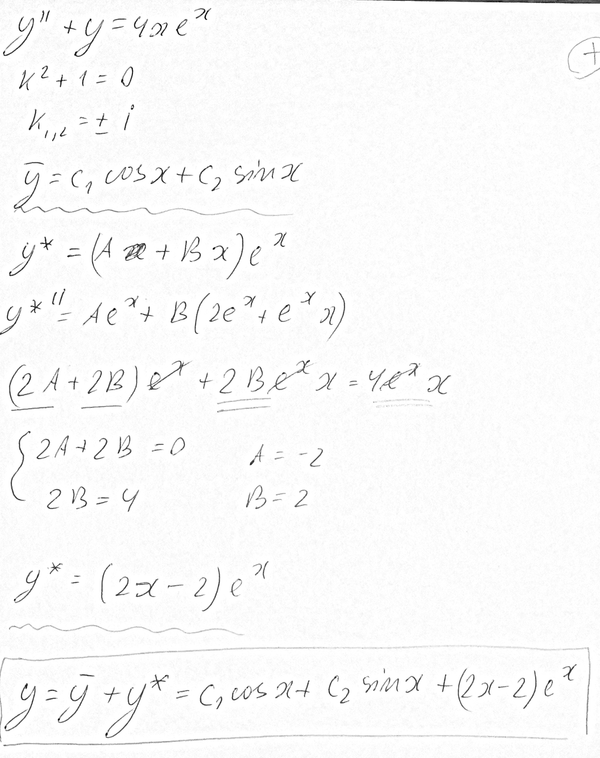 y'' + y = 4xe^x
+
k² + 1 = 0
k₁,₂ = ± i
ȳ = C₁ cos x + C₂ sin x
y* = (A + Bx)e^x
y*'' = Ae^x + B(2e^x + e^x x)
(2A + 2B)e^x + 2Be^x x = 4e^x x
{ 2A + 2B = 0 A = -2
2B = 4 B = 2
y* = (2x - 2)e^x
y = ȳ + y* = C₁ cos x + C₂ sin x + (2x-2)e^x